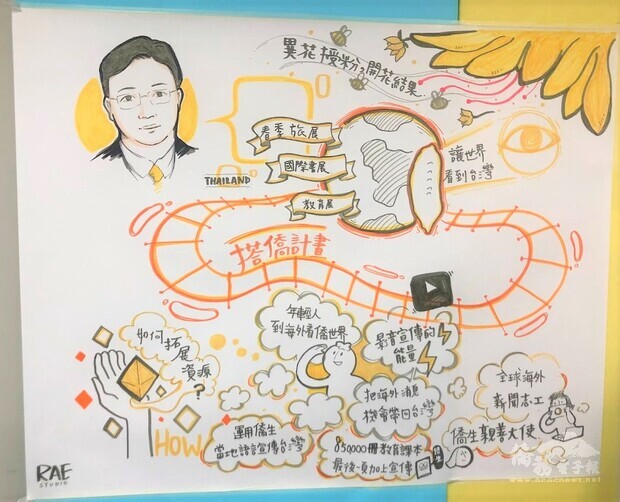 異花授粉,開花結果
春季旅展
國際書展
教育展
THAILAND
讓世界
看到台灣
搭僑計畫
年輕人
到海外看僑世界
影音宣傳的
能量
如何拓展
資源
?
把海外消息
機會帶回台灣
全球海外
新聞志工
HOW
運用僑生
當地語言宣傳台灣
850000冊教育課本
最後一頁加上宣傳
僑生親善大使
RAE
STUDIO